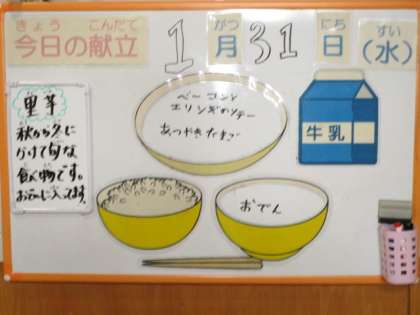 きょう こんだて がつ にち すい
今日の献立 1月31日(水)
ベーコンと
エリンギのソテー
あつやきたまご
牛乳
里芋
秋から冬に
かけて旬な
食べ物です。
おでんに入ってます。
おでん